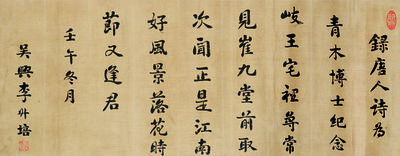 錄唐人詩為
青木博士紀念
岐王宅裡尋常
見崔九堂前取
次聞正是江南
好風景落花時
莭又逢君
壬午冬月
吳興李培